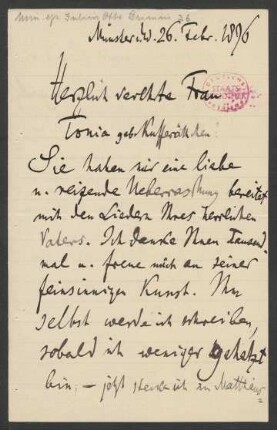 Münster i/W. 26. Febr. 1896
Herzlich verehrte Frau
Tonia geb.
Sie haben mir eine liebe
u. reizende Ueberraschung bereitet
mit den Liedern Ihres herrlichen
Vaters. Ich danke Ihnen tausend
mal u. freue mich an seiner
feinsinnigen Kunst. Ihm
selbst werde ich schreiben,
sobald ich weniger gehetzt
bin; – jetzt stecke ich in Matthäus=